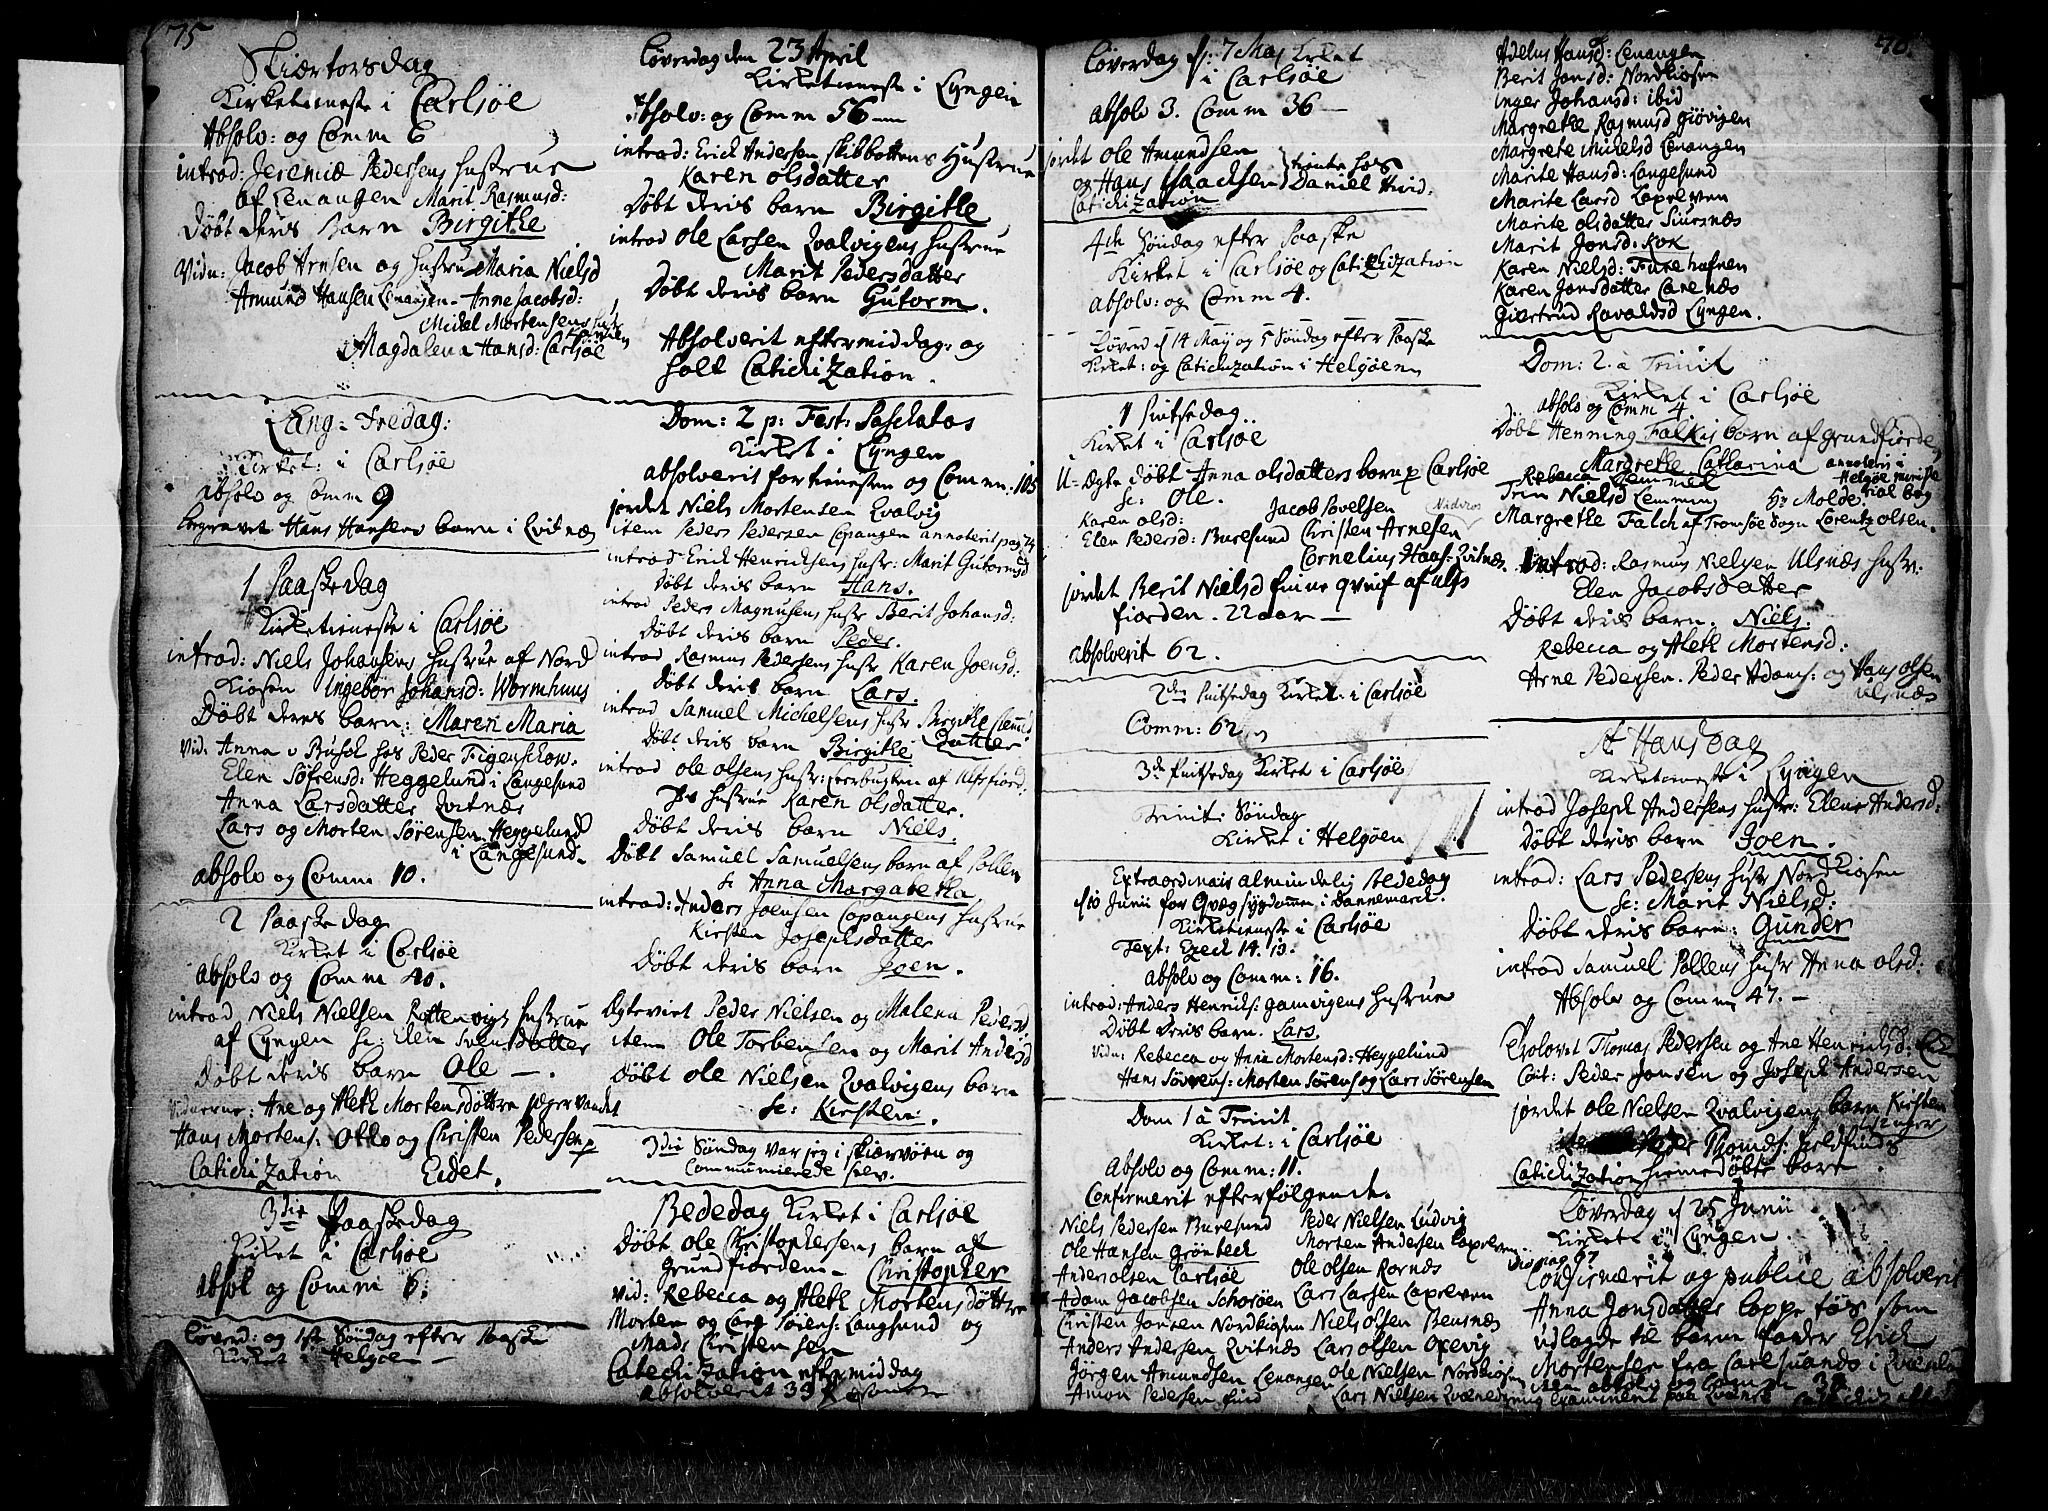 75
Skiærtorsdag
Kirketieneste i Carlsøe
Absolv: og Comm 6
introd: Jeremiæ Pedersens Hustrue
af Lenangen Marit Rasmusd:
Døbt deris Barn Birgithe
Vidn: Jacob Arnsen og hustru Maria Nielsd
Amund Hansen Lenangen - Anne Jacobsd:
Michel Mortensens
Magdalena Hansd: Carlsøe
Lang-Fredag:
Kirket: i Carlsøe
absolv og Comm 9
begravet Hans Hansens barn i Qvitnæs
1 Paaskedag
Kirketieneste i Carlsøe
introd: Niels Johansens hustrue af Nord
kiosen Ingebor Johansd: Wormhuus
Døbt deris barn: Maren Maria
Vid. Anna v Busch hos Peder Figenschow.
Elen Søfrensd: Heggelund i Langesund
Anna Larsdatter Qvitnæs
Lars og Morten Sørensen Heggelund
i Langesund
absolv og Comm 10.
2 Paaskedag
Kirket i Carlsøe
absolv og Comm 20.
introd Niels Nielsen Rottenvigs hustrue
af Lyngen sc: Elen Svensdatter
Døbt deris barn Ole -.
Vidnerne: Ane og Aleth Mortensdøttre Jægervandet
Hans Mortens: Otto og Christen Pedersen
Catichization Eidet.
3die Paaskedag
Kirket i Carlsøe
absol og Comm 6:
Løverd: og 1ste Søndag efter Paaske
Kirket i Helgøen
Løverdag den 23 April
Kirketieneste i Lyngen
Absolv: og Comm 56
introd: Erick Andersen skibbottens Hustrue
Karen Olsdatter
Døbt deris barn Birgithe
introd Ole Larsen Qvalvigens hustrue
Marit Pedersdatter
Døbt deris barn Gutorm.
Absolverit eftermiddag: og
holt Catichization.
Dom: 2 p: Fest: Paschatos
Kirket i Lyngen
absolverit for tienesten og Comm: 105
jordet Niels Mortensen Qvalvig
item Peder Pedersen Copangen annoterit pag 74
introd Erick Henricksens hustr: Marit Gutormsd
Døbt deris barn Hans.
introd Peder Magnusens hustr Berit Johansd:
Døbt deris barn Peder.
introd Rasmus Pedersens hustr Karen Joensd:
Døbt deris barn Lars.
introd Samuel Michelsens hustr Birgithe Clemmid
Døbt deris barn Birgithe datter
introd Ole Olsens hustr: Leerbugten af Ulsfiord:
hustrue Karen Olsdatter.
Døbt deris barn Niels.
Døbt Samuel Samuelsens barn af Pollen
sc Anna Margaretha
introd: Anders Joensen Copangens hustrue
Kirsten Josephsdatter
Døbt deris barn Joen.
Ægteviet Peder Nielsen og Malena Pedersd
item Ole Torbensen og Marit Andersd
Døbt Ole Nielsen Qvalvigens barn
sc: Kirsten:.
3die Søndag var jeg i Skiærvøen og
Communicerede selv.
Bededag Kirket i Carlsøe
Døbt Ole Christophersens barn af
Grundfiorden - Christopher
Vid: Rebecca og Aleth Mortensdøttre
Morten og Lars Sørens: Langsund og
Mads Christensen
Catechization eftermiddag
absolverit 33
Løverdag d: 7 Maj Kirket
i Carlsøe
absolv 3. Comm 36 -
jordet Ole Amundsen
og Hans Isaacksen } tiente hos Daniel Hvid:
Catichization
4de Søndag efter Paaske
Kirket i Carlsøe og Catichization
absolv: og Comm 4.
Løverd d 14 Maij og 5 Søndag efter Paaske
Kirket: og Catichization i Helgøen
1 Pintsedag.
Kirket i Carlsøe
U-Ægte døbt Anna Olsdatters barn Carlsøe
sc: Ole.
Karen Olsd: Jacob Povelsen
Elen Pedersd: Buresund Christen Arnesen Nidvos
Cornelius Haas: Qvitnæs.
jordet Berit Nielsd finne af Ulfs
fiorden. 22 aar -
absolverit 62.
2den Pintsedag Kirket i Carlsøe
Comm: 62
3de Pintsedag Kirket i Carlsøe
Trinit: Søndag
Kirket i Helgøen
Extraordinair almindelig Bededag
d 10 Junii for Qvægsygdommen i Dannemarck.
Kirketieneste i Carlsøe
Text: Ezech 14. 13.
absolv og Comm: 16.
introd: Anders Henricks: Gamvigens hustrue
Døbt deris barn. Lars.
Vidn: Rebecca og Ane Mortensd: Heggelund
Hans Sørens: Morten Sørens og Lars Sørensen
Dom 1 à Trinit.
Kirket: i Carlsøe
absolv og Comm: 11.
Confirmerit efterfølgende.
Niels Pedersen Buresund Peder Nielsen Ludvig
Ole Hansen Grønbeck Morten Andersen Lapreven
Anders Olsen Carlsøe Ole Olsen Rornæs
Adam Jacobsen Schorøen Lars Larsen Lapreven
Christen Jonsen Nordkiosen Niels Olsen Beusnæs
Anders Andersen Qvitnæs Lars Olsen Oxevig
Jørgen Amundsen Lenangen Ole Nielsen Nordkiosen
Amon Pedersen Find Lars Nielsen
76.
Adelus Hansd: Lenangen
Berit Jonsd: Nordkiosen
Inger Johansd: ibid
Margrethe Rasmusd Giøvigen
Margrete Michelsd Lenangen
Marite Hansd: Langesund
Marite Larsd Lapreven
Marite Olsdatter Siursnæs
Marit Jonsd: Kok
Karen Nielsd: Furehafnen
Karen Jonsdatter Carenæs
Giertrud Ravaldsd Lyngen.
Dom: 2. à Trinit
Kirket i Carlsøe
absolv og Comm 4.
Døbt Henning Falkis barn af Grundfiorden
Margrethe Catharina annoteris i
Rebecca Hemmel Helgøe
Trin Nielsd Lemming Hr Molde
Margrethe Falch af Tromsøe Sogn Lorentz Olsen.
Introd: Rasmus Nielsen Ulsnæs hustr:
Elen Jacobsdatter
Døbt deris barn. Niels.
Rebecca og Aleth Mortensd:
Arne Pedersen. Peder Adams: og Hans Olsen
Ulsnæs
St Hansdag
Kirketieneste i Lyngen
introd Joseph Andersens hustr: Elene Andersd:
Døbt deris barn Joen.
introd: Lars Pedersens hustr Nordkiosen
sc: Marit Nielsd:
Døbt deris barn: Gunder
introd Samuel Pollens hustr Anna Olsd:
Absolv og Comm 47. -
Trolovet Thomas Pedersen og Ane Henricksd:
Coit: Peder Jonsen og Joseph Andersen
jordet Ole Nielsen Qvalvigens barn Kirsten
Peder Thomes:
Catichization hiemedøbte barn
Løverdag d 25 Junii
Kirket i Lyngen.
vid pag 67
Confirmerit og publice absolverit
Anna Jonsdatter Lappe tøs som
udlagde til barne fader Erick
Mortensen fra Caresuando i
item absolv og Comm 32
examinerit